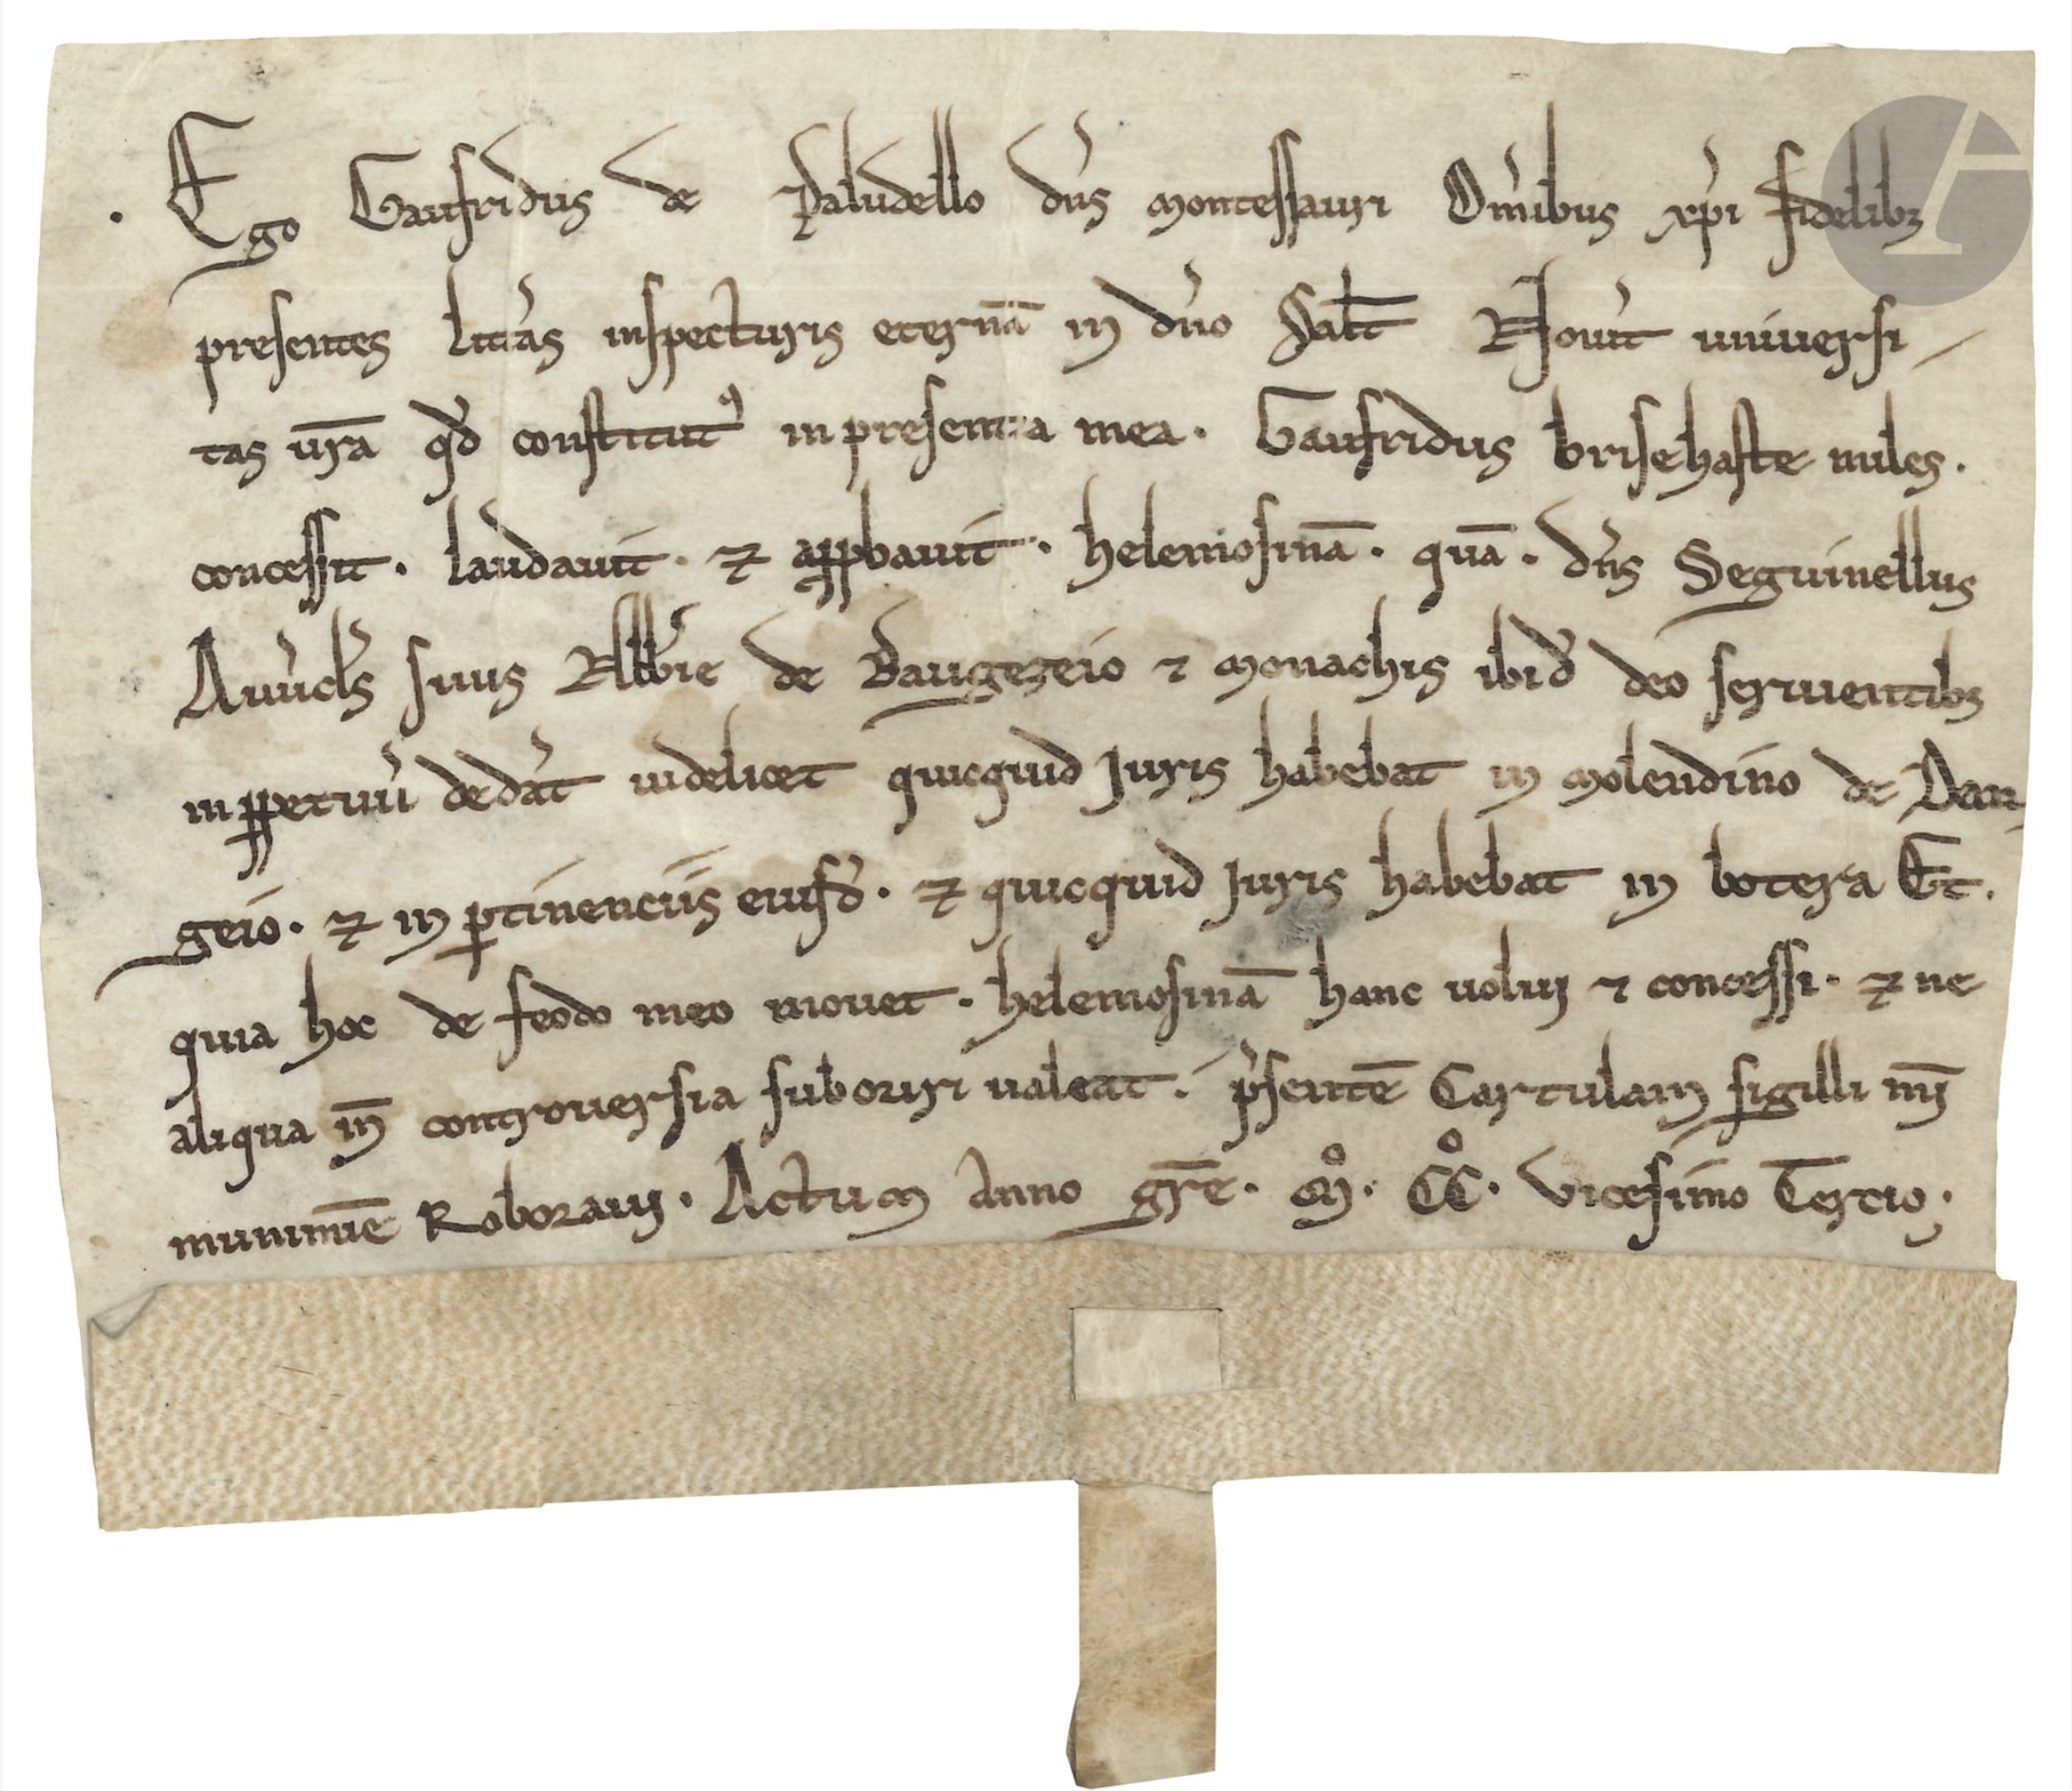 . Ego Gaufridus de Paludello dn̄s montessauri Om̄ibus xp̄i fidelibꝫ
presentes litt̄as inspecturis eternā in dn̄o Salt̄ Nou̾it uniuersi-
tas ur̄a qđ constitutꝰ in presentia mea. Gaufridus brisehaste miles.
concessit. laudauit. ⁊ apꝓbauit. helemosinā. quā. dn̄s Seguinellus
Auūcl̄s suus Abb̄ie de Baugezeio ⁊ monachis ibid̄ deo seruentibꝫ
in ꝑpetuū ded̾at uidelicet quicquid Juris habebat in molendino de Dan-
geio. ⁊ in ꝑtinenciis eiusd̄. ⁊ quicquid Juris habebat in botera Et.
quia hoc de feodo meo mouet. helemosinā hanc uolui ⁊ concessi. ⁊ ne
aliqua in̄ controuersia suboriri ualeat. p̄sentē Cartulam sigilli mī
munimīe Roboraui. Actum Anno gr̄e. mͦ. CCͦ. vicesimo Tercio.